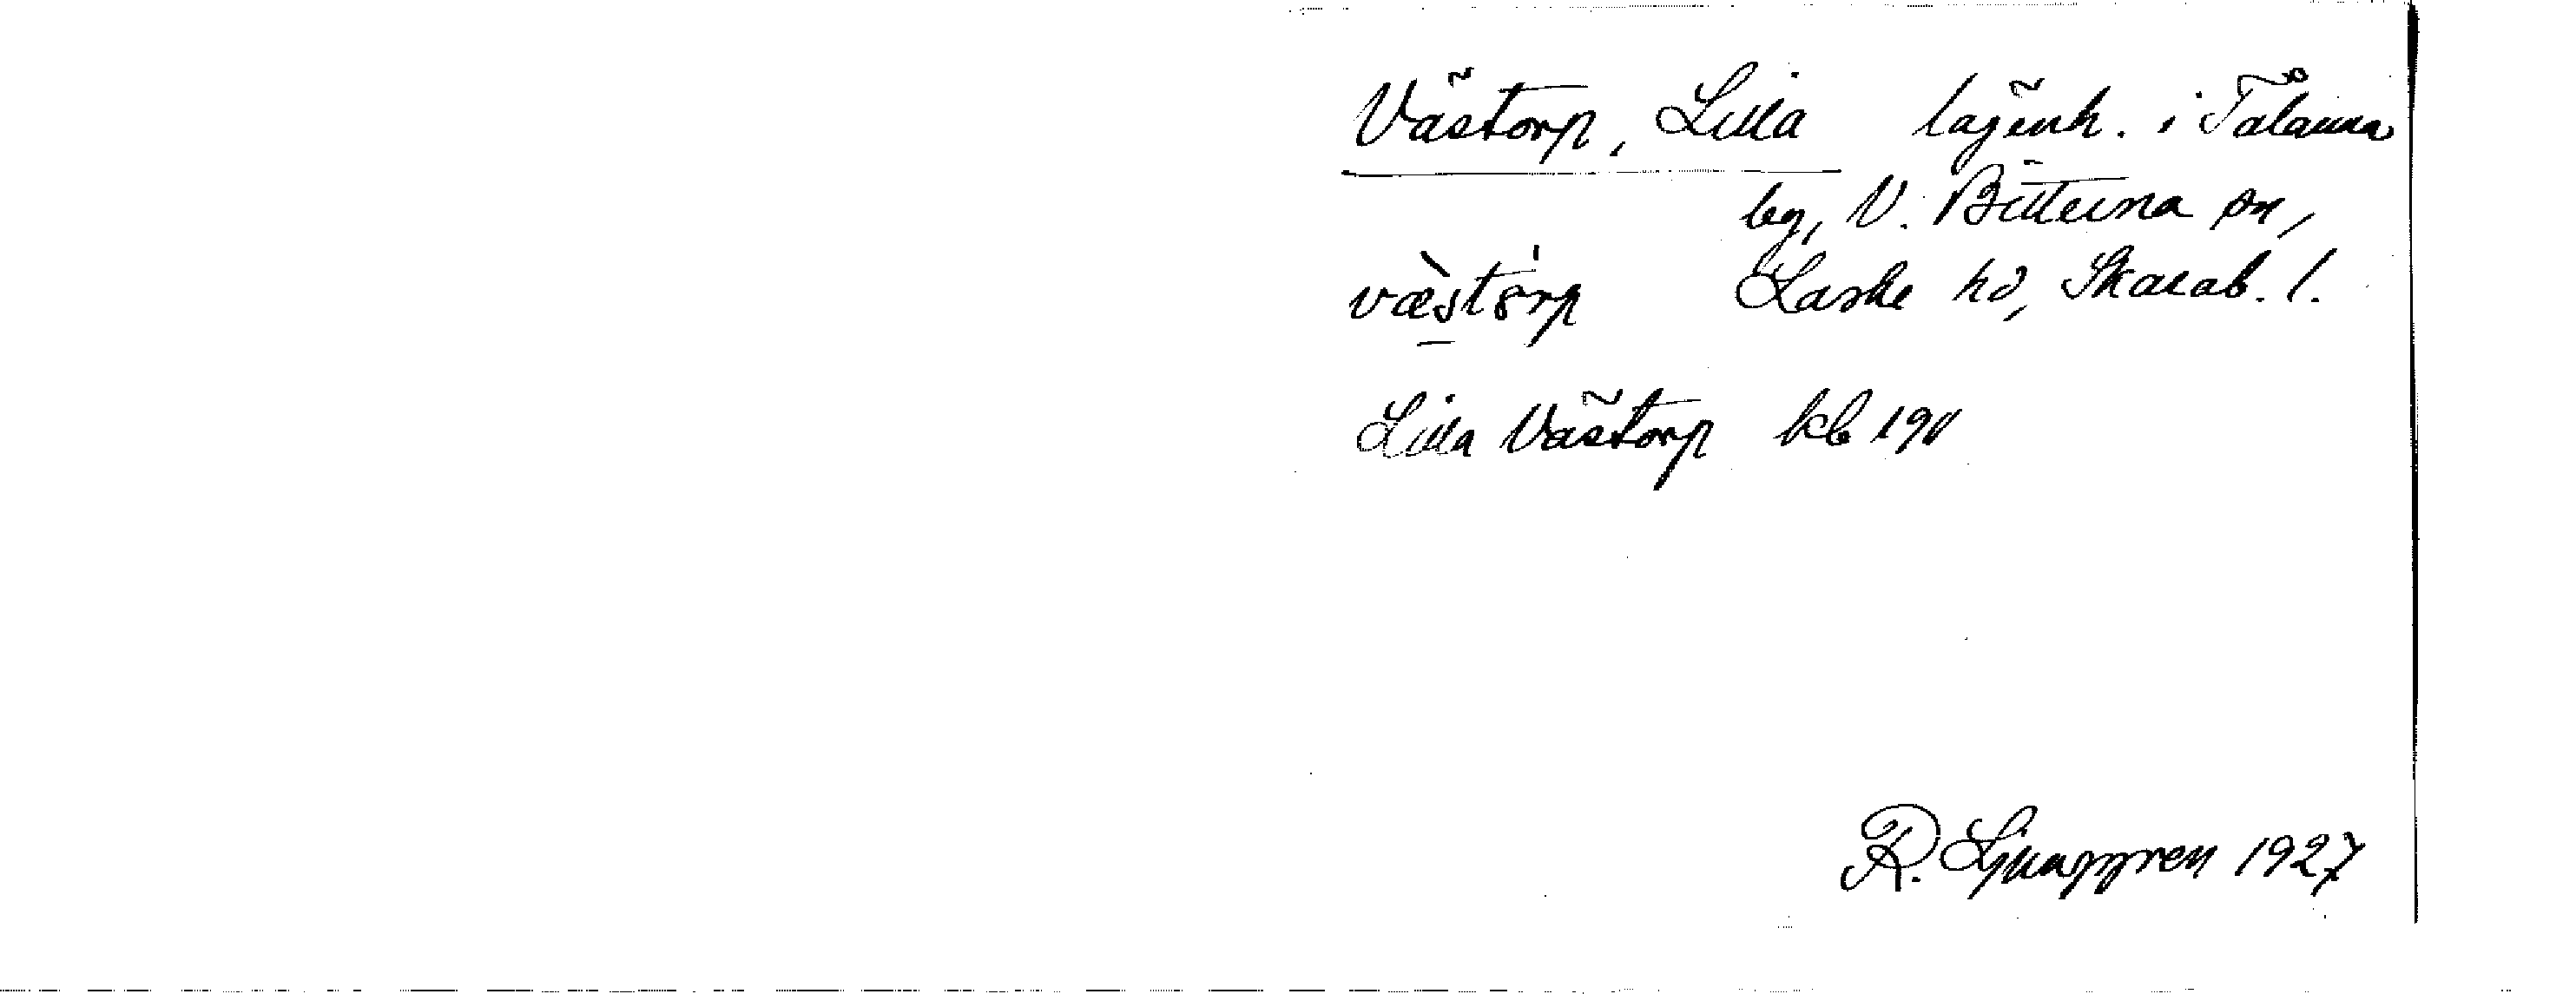 Västorp, Lilla lägenh. i Tålanna
by, V. Bitterna sn,
væ̀stórp Laske hd, Skarab. l.
Lilla Västorp kb
R. Ljunggren 1927